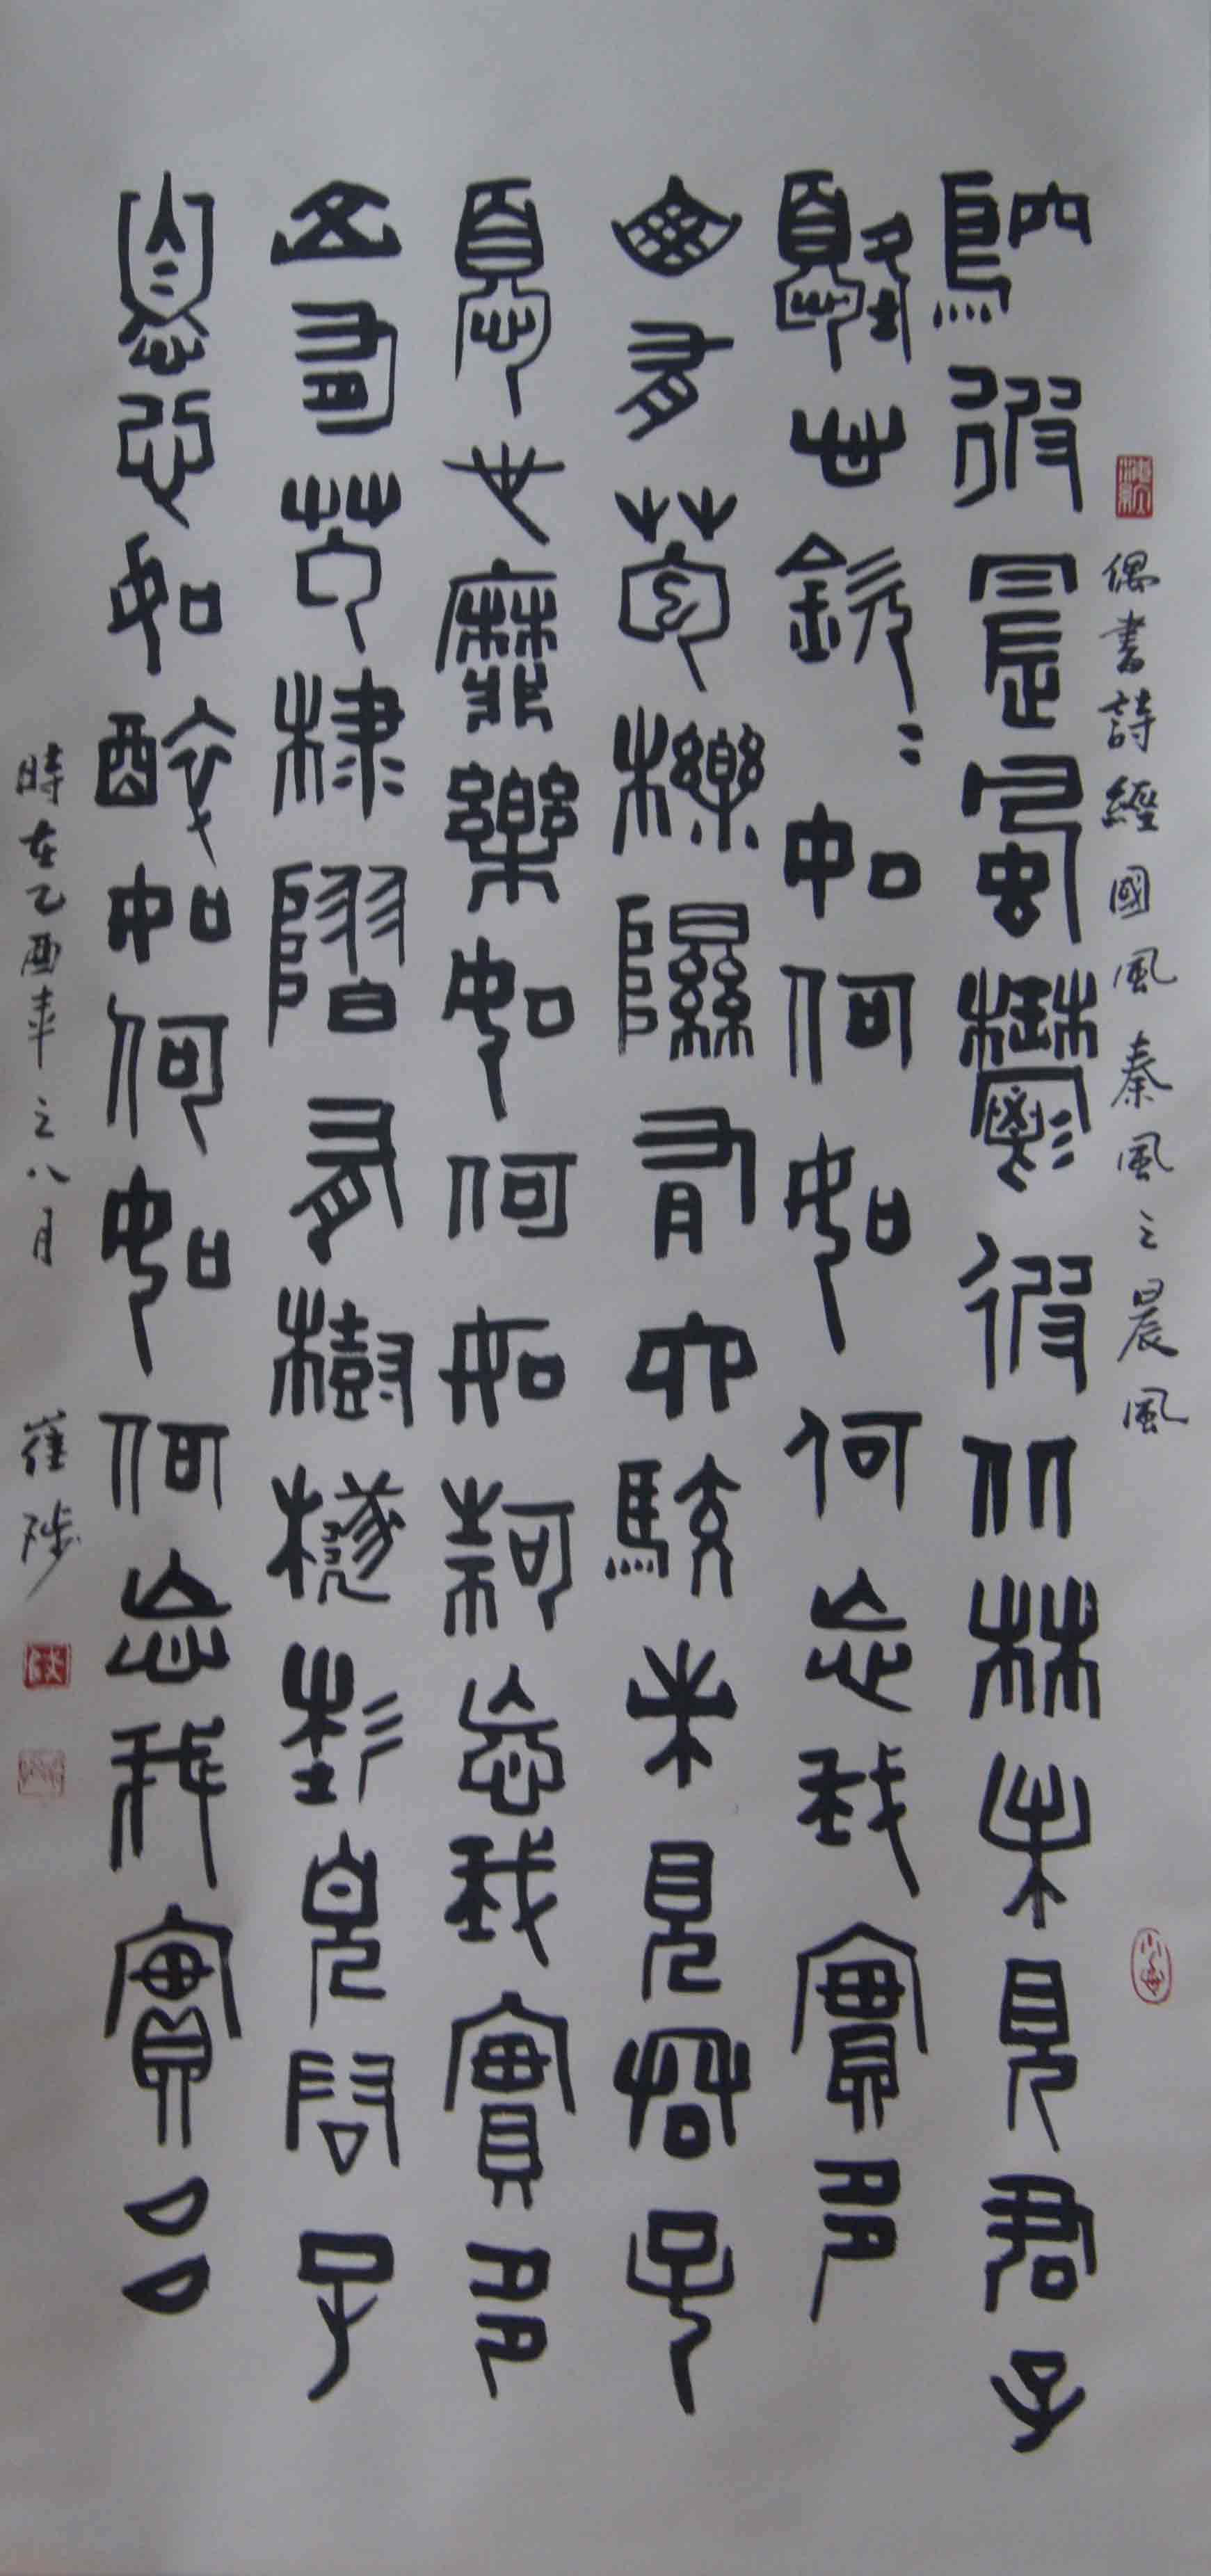 偶書詩經國風秦風之晨風
鴥彼晨風鬱彼北林未見君子
憂心欽〻如何如何忘我實多
山有苞櫟隰有六駮未見君子
憂心靡樂如何如何忘我實多
山有苞棣隰有樹檖未見君子
憂心如醉如何如何忘我實多
時在乙酉年之八月 崔陟